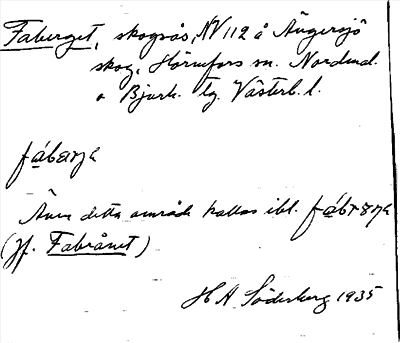 Faberget, skogsås, NV 112 å Ångersjö
skog, Hörnefors sn. Nordmal.
o Bjurh. tg. Västerb. l.
fábærjɛ
Även detta område kallas ibl. fábrærjɛ
(jf. Fabrånet)
H A Söderberg 1935